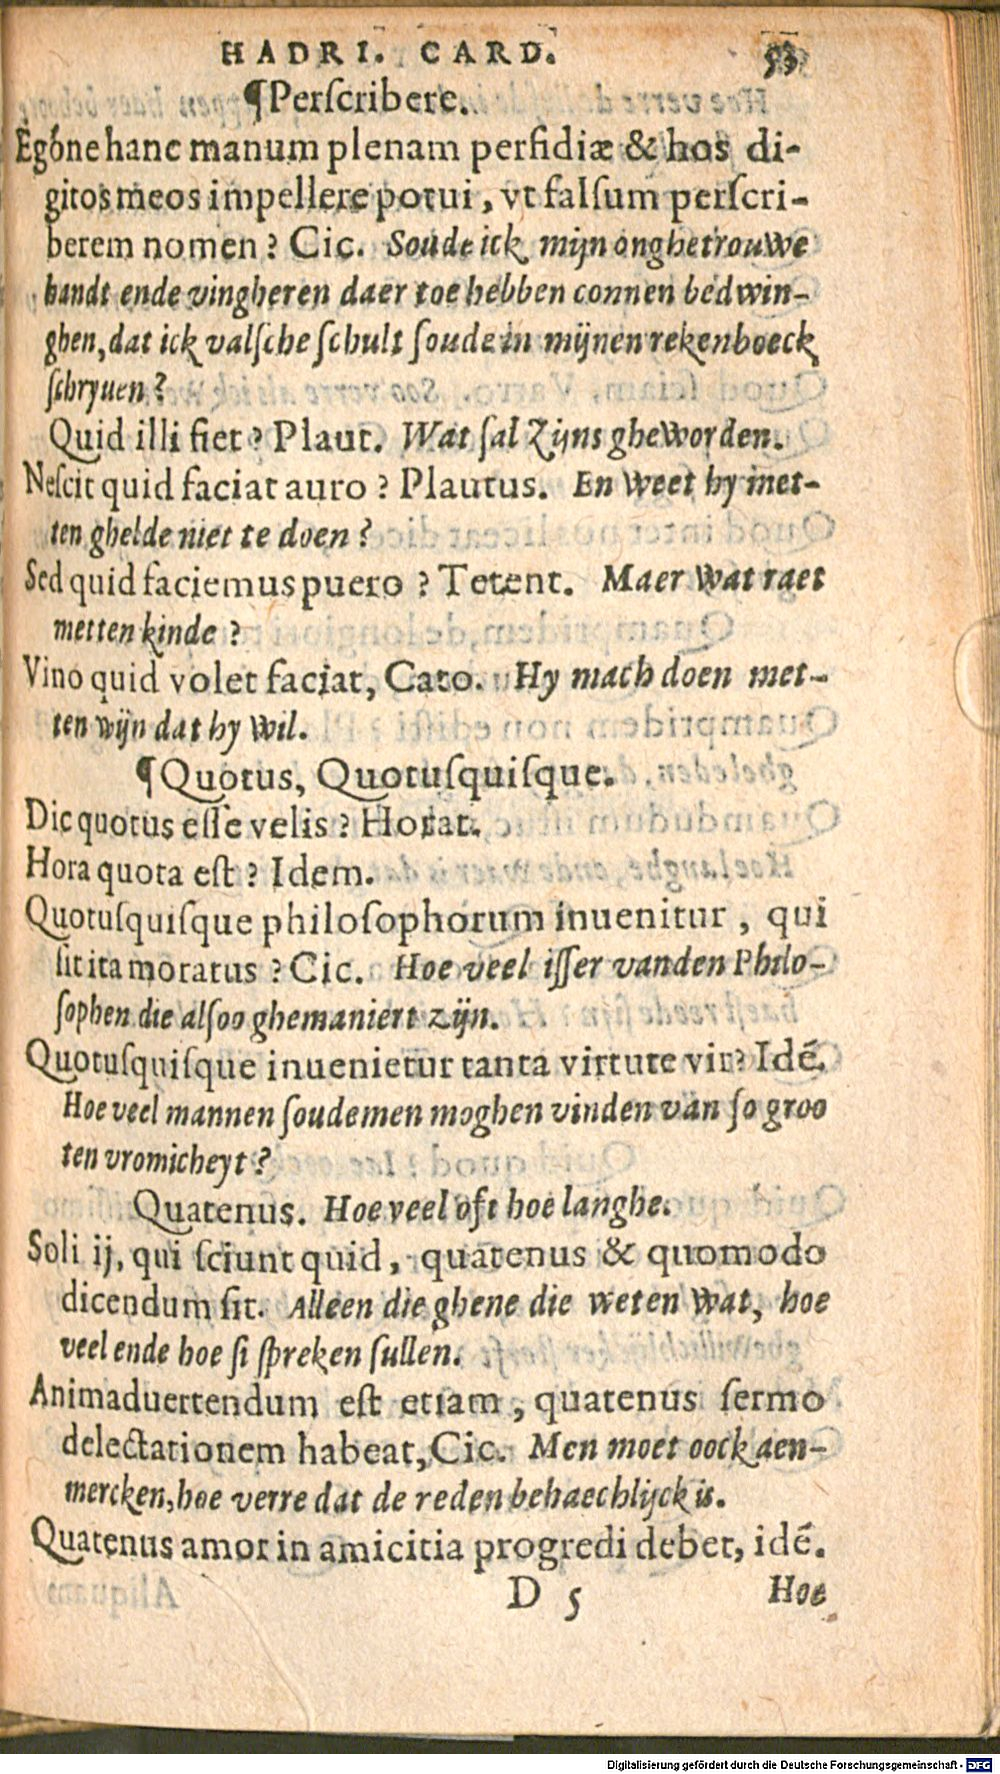 HADRI. CARD. 53
¶Perſcribere.
Egóne hanc manum plenam perfidiæ & hos di-
gitos meos impellere potui, vt falſum perſcri-
berem nomen? Cic. Soude ick mijn onghetrouwe
handt ende vingheren daer toe hebben connen bedwin-
ghen, dat ick valſche ſchult ſoude in mijnen rekenboeck
ſchryuen?
Quid illi fiet? Plaut. Wat ſal Zijns gheworden.
Neſcit quid faciat auro? Plautus. En weet hy met-
ten ghelde niet te doen?
Sed quid faciemus puero? Tetent. Maer wat raet
metten kinde?
Vino quid volet faciat, Cato. Hy mach doen met-
ten wijn dat hy wil.
¶Quotus, Quotuſquiſque.
Dic quotus eſſe velis? Horat.
Hora quota eſt? Idem.
Quotuſquiſque philoſophorum inuenitur, qui
ſit ita moratus? Cic. Hoe veel iſſer vanden Philo-
ſophen die alſoo ghemaniert zijn.
Quotuſquiſque inuenietur tanta virtute vir? Idē.
Hoe veel mannen ſoudemen moghen vinden van ſo groo
ten vromicheyt?
Quatenus. Hoe veel oft hoe langhe.
Soli ij, qui ſciunt quid, quatenus & quomodo
dicendum ſit. Alleen die ghene die weten wat, hoe
veel ende hoe ſi ſpreken ſullen.
Animaduertendum eſt etiam, quatenus ſermo
delectationem habeat, Cic. Men moet oock aen-
mercken, hoe verre dat de reden behaechlijck is.
Quatenus amor in amicitia progredi debet, idē.
D 5 Hoe
Digitalisierung gefördert durch die Deutsche Forschungsgemeinschaft - DFG